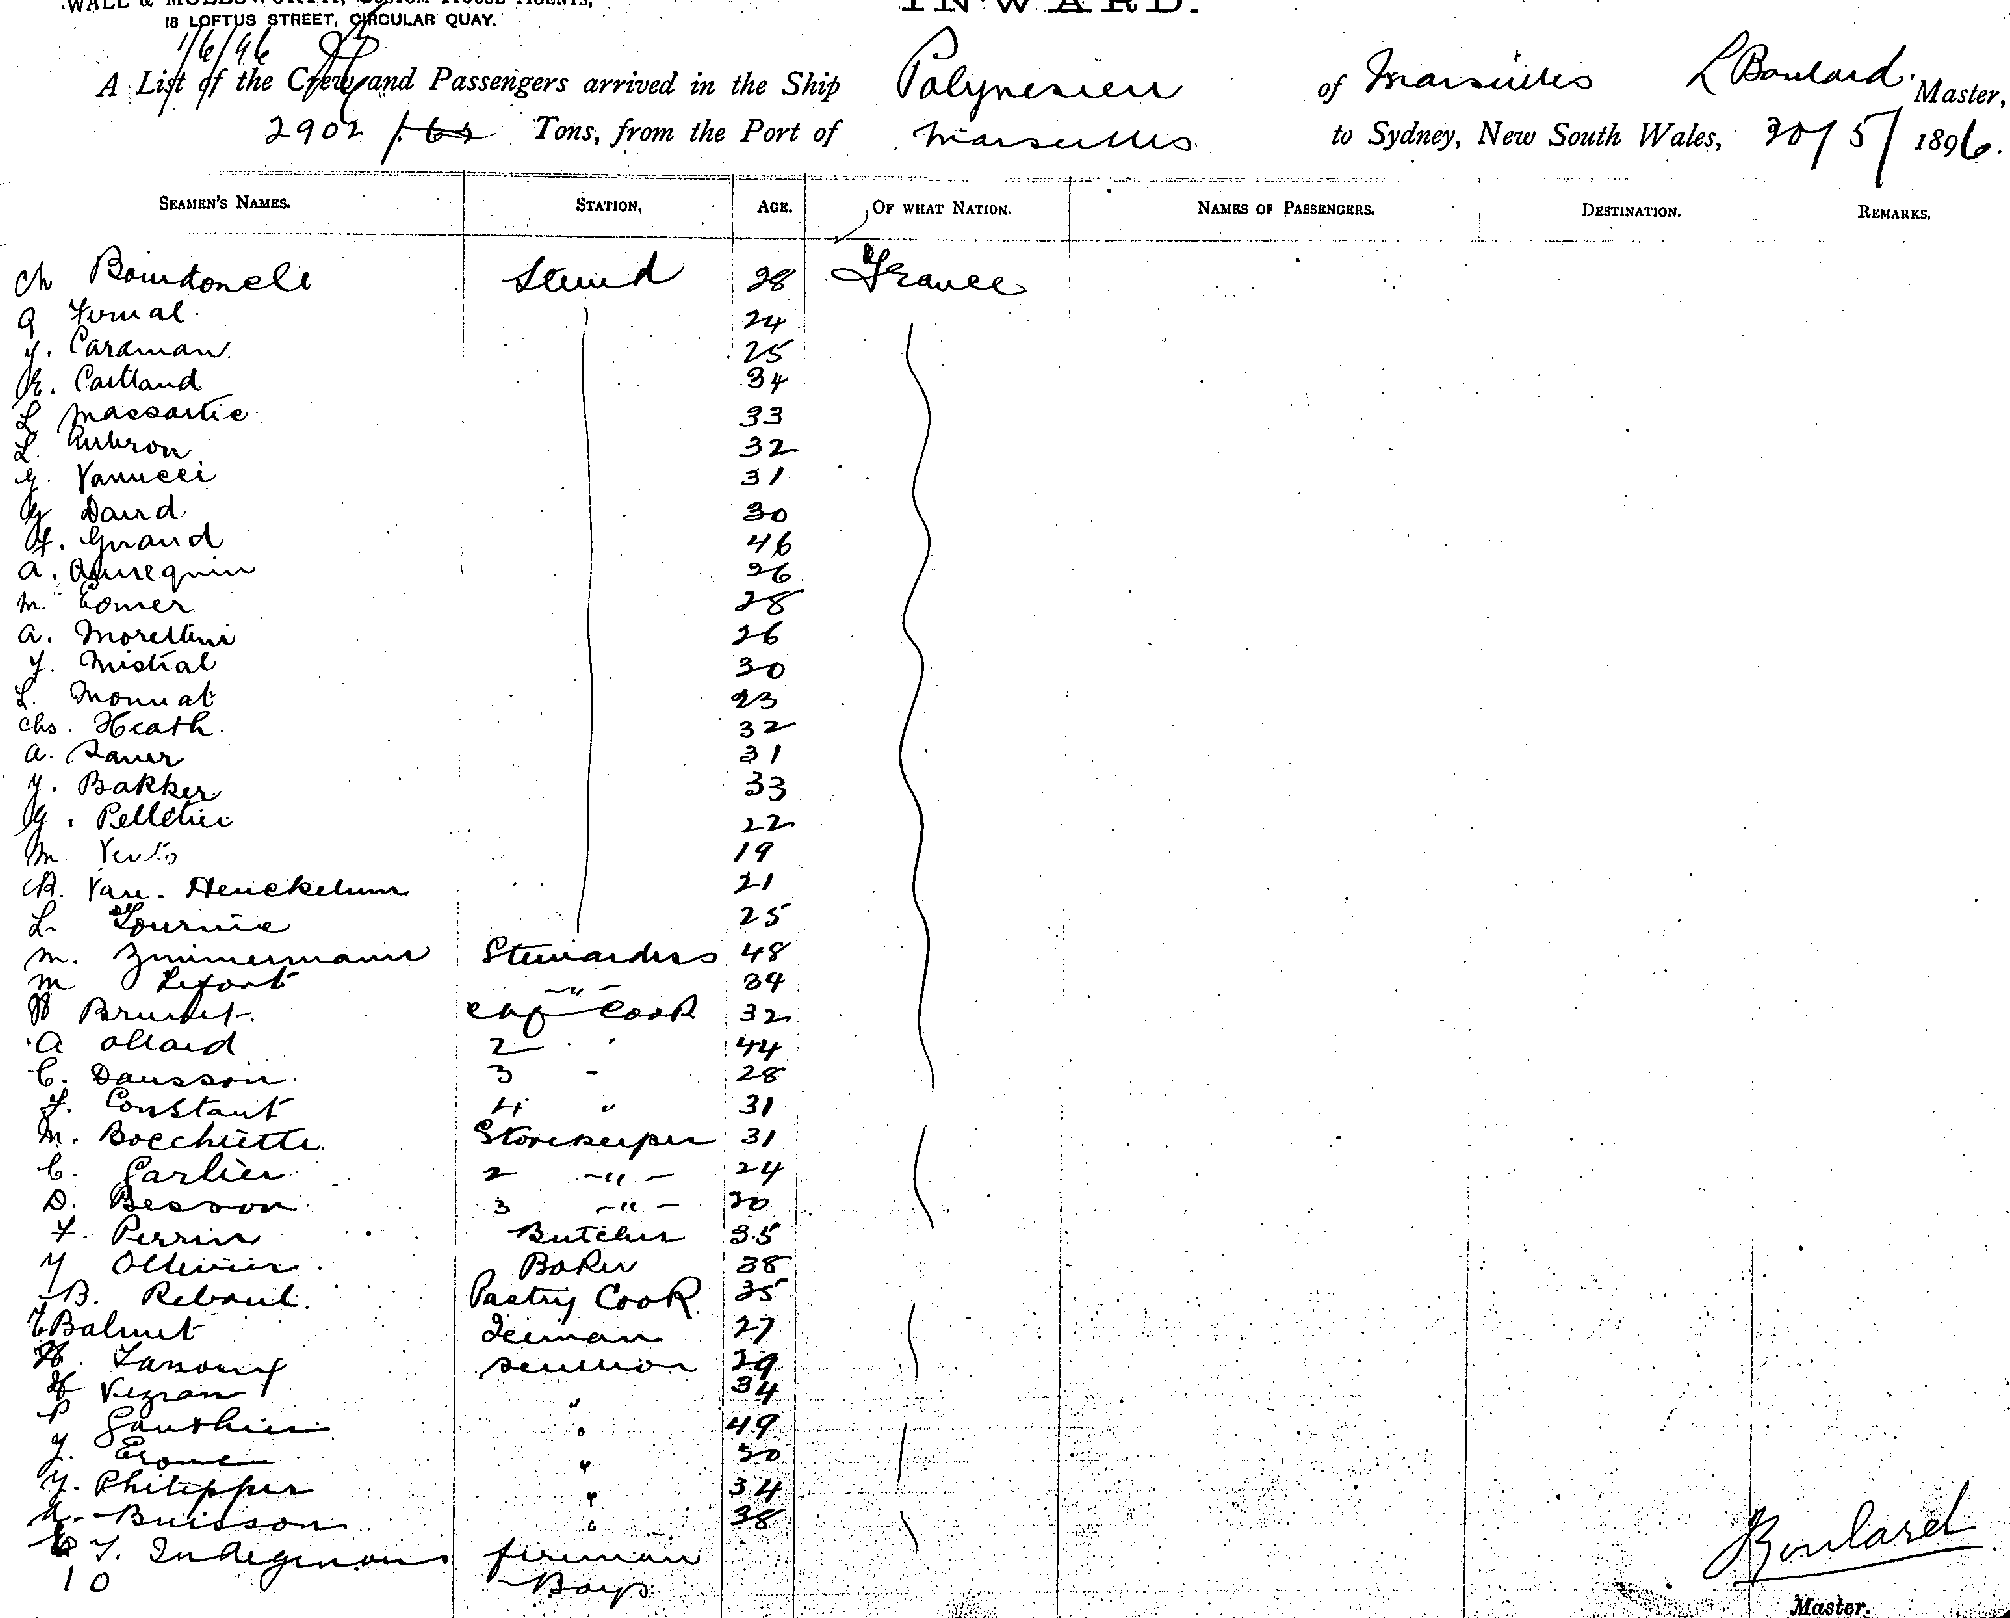 WALL & MOLESWORTH, CUSTOM HOUSE AGENTS,
18 LOFTUS STREET, CIRCULAR QUAY.
INWARD.
1/6/96
A List of the Crew and Passengers arrived in the Ship Polynesien of Marseilles L Boulard. Master,
2902 Tons, from the Port of Marseilles to Sydney, New South Wales, 30/5/1896.
SEAMEN'S NAMES. STATION, AGE. OF WHAT NATION. NAMES OF PASSENGERS. DESTINATION. REMARKS.
Ch Bourdoncle Steward 28 France
24
Y. Cardman 25
Castland 34
L Massartie 33
L. Aubron 32
Vanucci 31
David 30
Y. Guand 46
a. 26
m. Comer 28
a. Morettini 26
Y. Mistral 30
L. Monnat 23
Chs. Heath. 32
a. Saner 31
Y. Bakker 33
G. Pelletier 22
M Vento 19
Ch. Van. Henckelum 21
L. Fournie 25
M. Zimmermann Stewardess 48
M Lefort -"- 34
Brunet Chef Cook 32
A Allard 2 " 44
C. Dausson 3 - 28
F. Constant 4 " 31
M. Bocchietti Storekeeper 31
C. Garlier 2 -"- 24
D. Besson 3 -"- 30
F. Perrin Butcher 35
Y Ollivier Baker 38
B. Reboul. Pastry Cook 35
Balmet 27
29
Vezian " 34
P Gauthier " 49
Y. " 30
Y. Philippe " 34
Buisson " 38
Indigenous fireman
10 Boys
Boulard
Master.